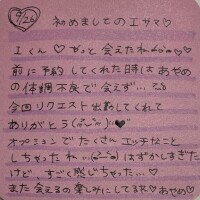 9/26
初めましてのIサマ♡
Iくん♡ やっと会えたね
前に予約してくれた時はあやめ
の体調不良で会えず…
今回リクエスト出勤してくれて
ありがとう
オプションでたくさんエッチなこと
しちゃったね… はずかしすぎた
けど、すごく感じちゃった…
また会えるの楽しみにしてるネ♡ あやめ♡